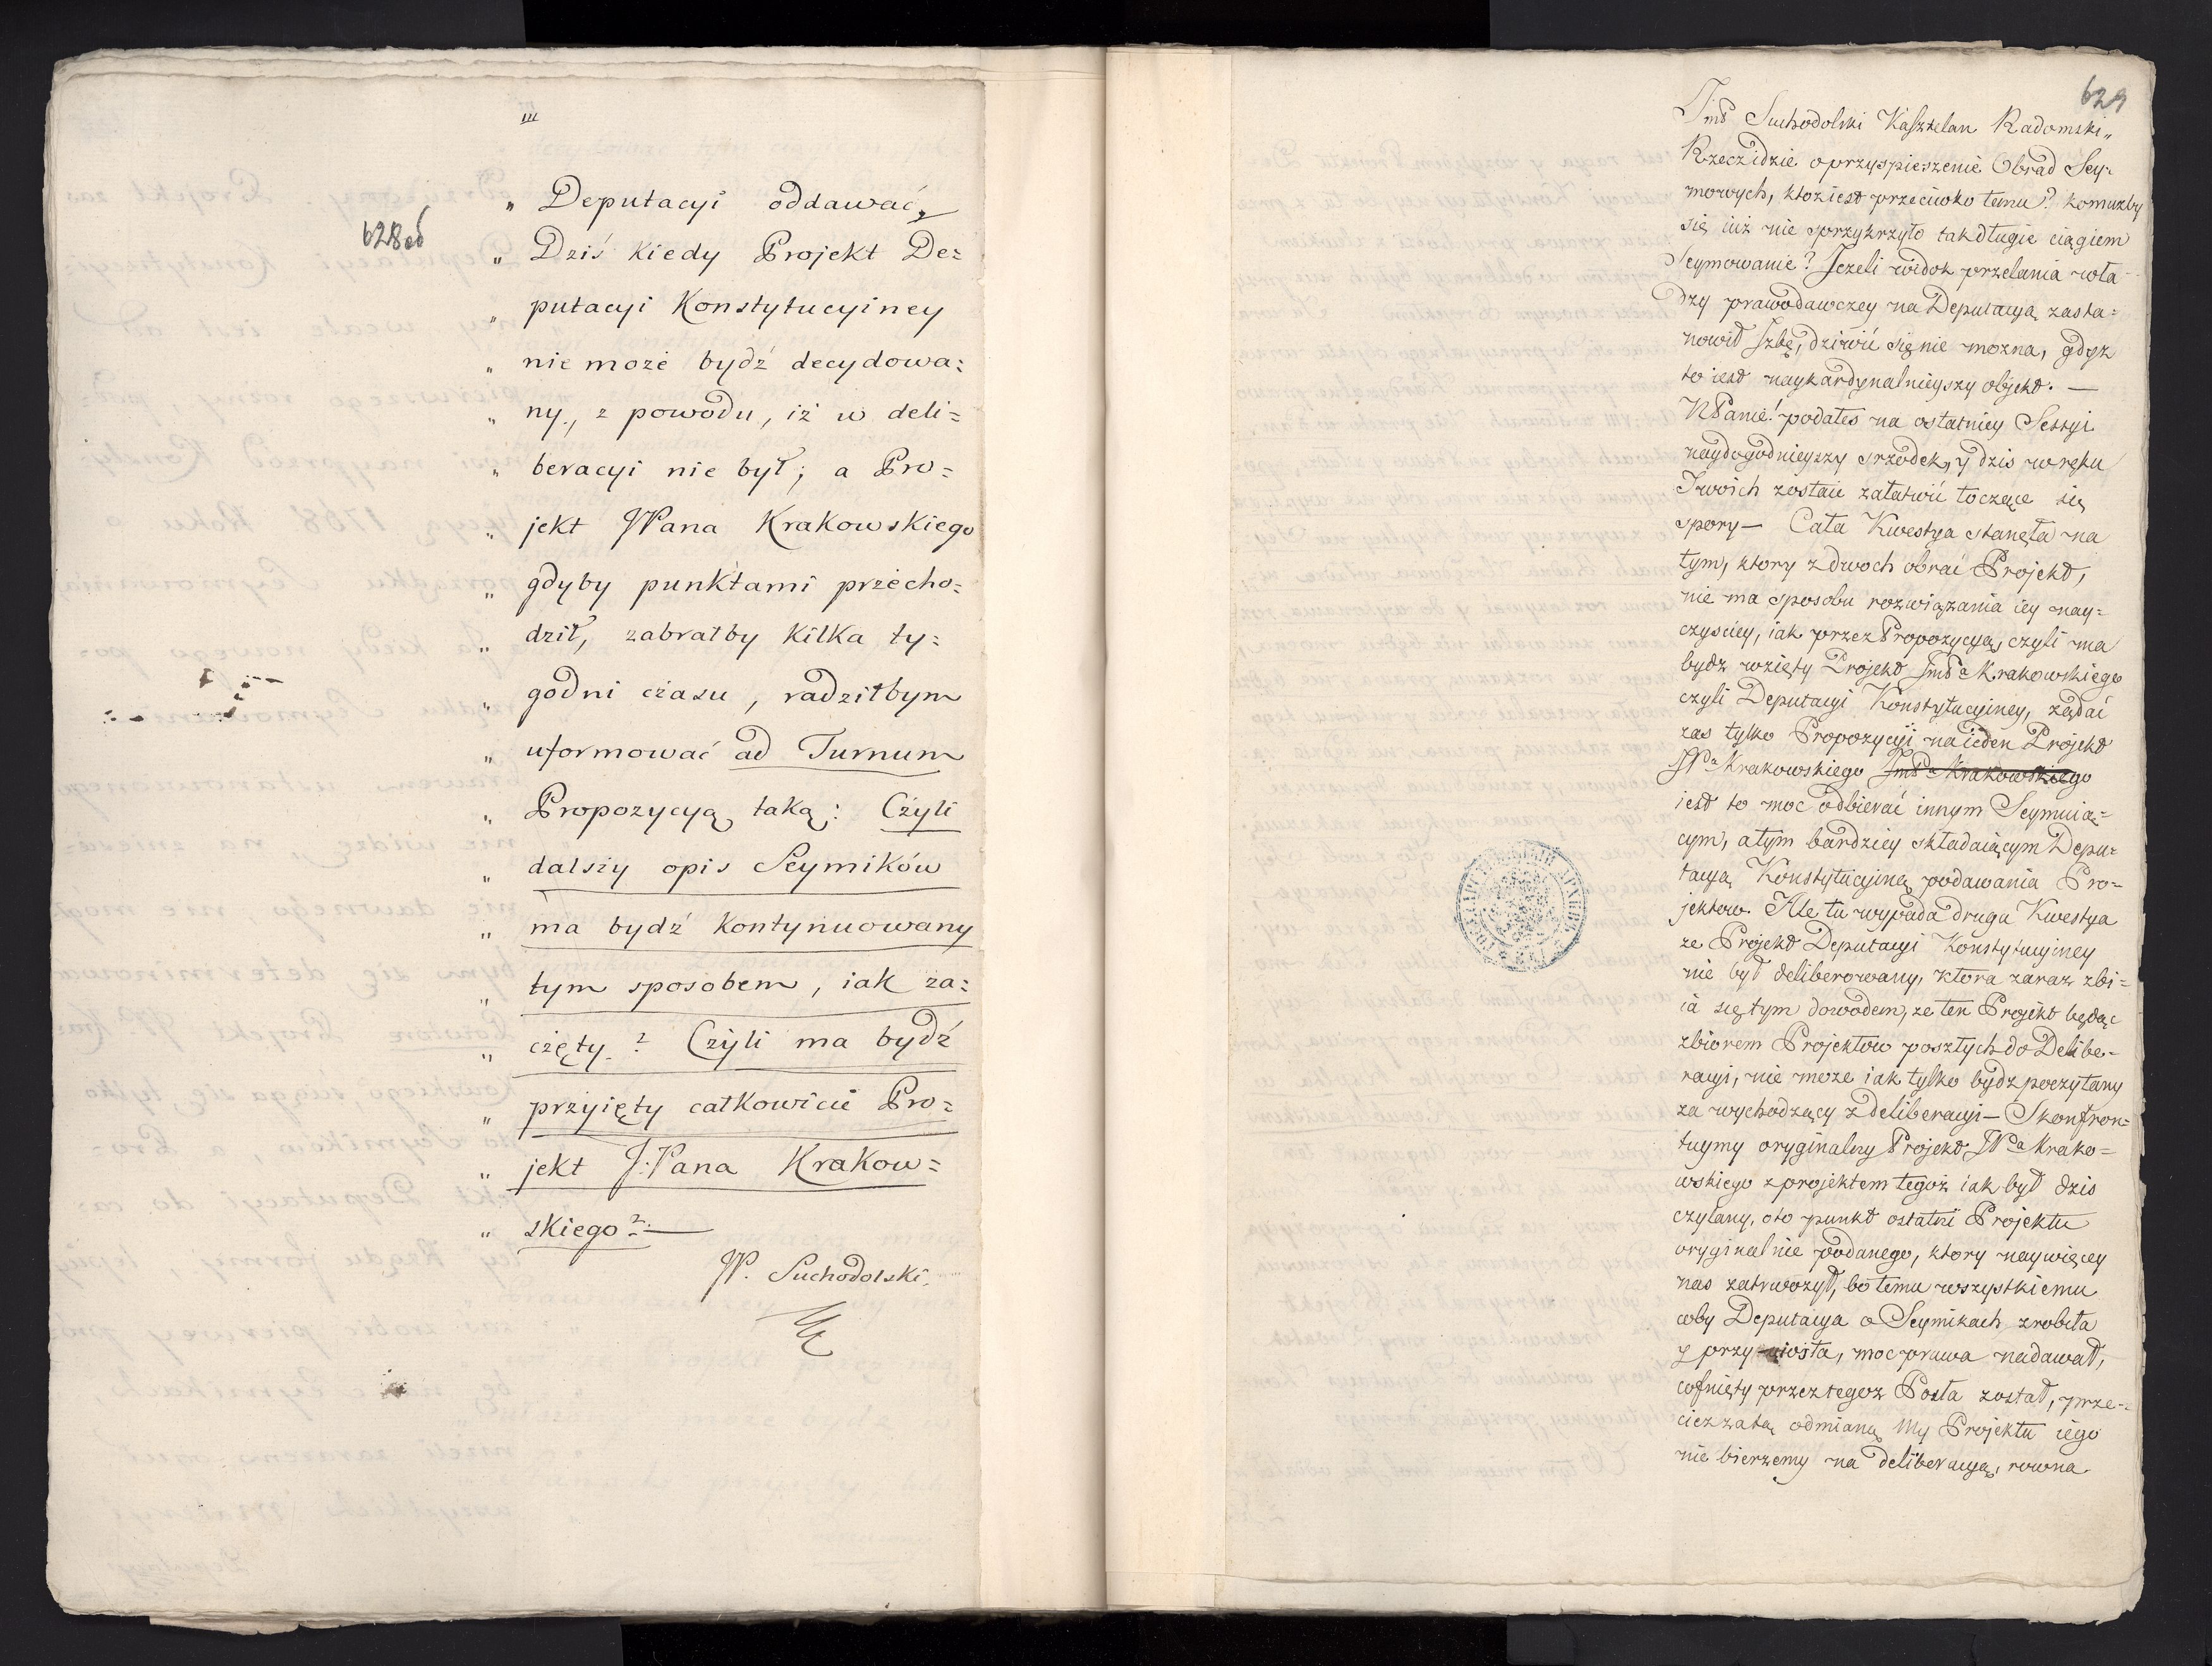 628 об
„ Deputacyi oddawać,
„ Dziś kiedy Projekt De=
„ putacyi Konstytucyiney
„ nie może bydź decydowa=
„ ny, z powodu, iż w deli=
„ beracyi nie był; a Pro=
„ jekt JPana Krakowskiego
„ gdyby punktami przecho=
„ dził, zabrałby kilka ty=
„ godni czasu, radziłbym
„ uformować ad Turnum
„ Propozycyą taką: Czyli
„ dalszy opis Seymików
„ ma bydź kontynuowany
„ tym sposobem, iak za=
„ częty? Czyli ma bydź
„ przyięty całkowicie Pro=
„ jekt J:Pana Krakow=
„ skiego?—
W. Suchodolski.
629
Jmć Suchodolski Kasztelan Radomski„
Rzecz idzie o przyspieszenie Obrad Sey=
mowych, ktoz iest przeciwko temu? komuzby
się iuż nie sprzykrzyło tak długie ciągiem
Seymowanie? Jezeli widok przelania wła=
dzy prawodawczey na Deputacyą zasta=
nowił Jzbę, dziwić się nie mozna, gdyz
to iest naykardynalnieyszy objekt. —
NPanie! podałes na ostatniey Sessyi
naydogodnieyszy srzodek, y dzis w ręku
Twoich zostaie załatwić toczące się
spory— Cała Kwestya stanęła na
tym, ktory z dwoch obrać Projekt,
nie ma sposobu rozwiązania iey nay=
czyściey, iak przez Propozycyą, czyli ma
bydz wzięty Projekt JmPa Krakowskiego
czyli Deputacyi Konstytucyiney, ządać
zas tylko Propozycyi na ieden Projekt
JPa Krakowskiego JmPa Krakowskiego
iest to moc odbierać innym Seymuią=
cym, a tym bardziey składaiącym Depu=
tacyą Konstytucyiną podawania Pro=
jektow. Ale tu wypada druga Kwestya
ze Projekt Deputacyi Konstytucyiney
nie był deliberowany, ktora zaraz zbi=
ia się tym dowodem, ze ten Projekt będąc
zbiorem Projektow poszłych do Delibe=
racyi, nie moze iak tylko bydz poczytany
za wychodzący z deliberacyi— Skonfron=
tuymy oryginalny Projekt JPa Krako=
wskiego z projektem tegoż iak był dzis
czytany, oto punkt ostatni Projektu
oryginalnie podanego, ktory naywięcey
nas zatrwożył, bo temu wszystkiemu
coby Deputacya o Seymikach zrobiła
y przyniosła, moc prawa nadawał,
cofnięty przez tegoz Posła został, prze=
ciez za tą odmianą My Projektu iego
nie bierzemy na deliberacyą, rowna